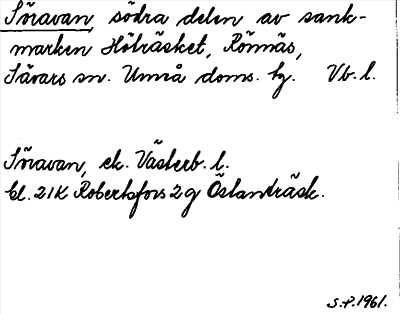 Söravan, södra delen av sank-
marken Hölräsket, Rönnäs,
Sävars sn. Umeå doms. hg. Vb. l.
Söravan, ek. Västerb. l.
bl. 21K Robertsfors 2g Öslanträsk.
S.P. 1961.